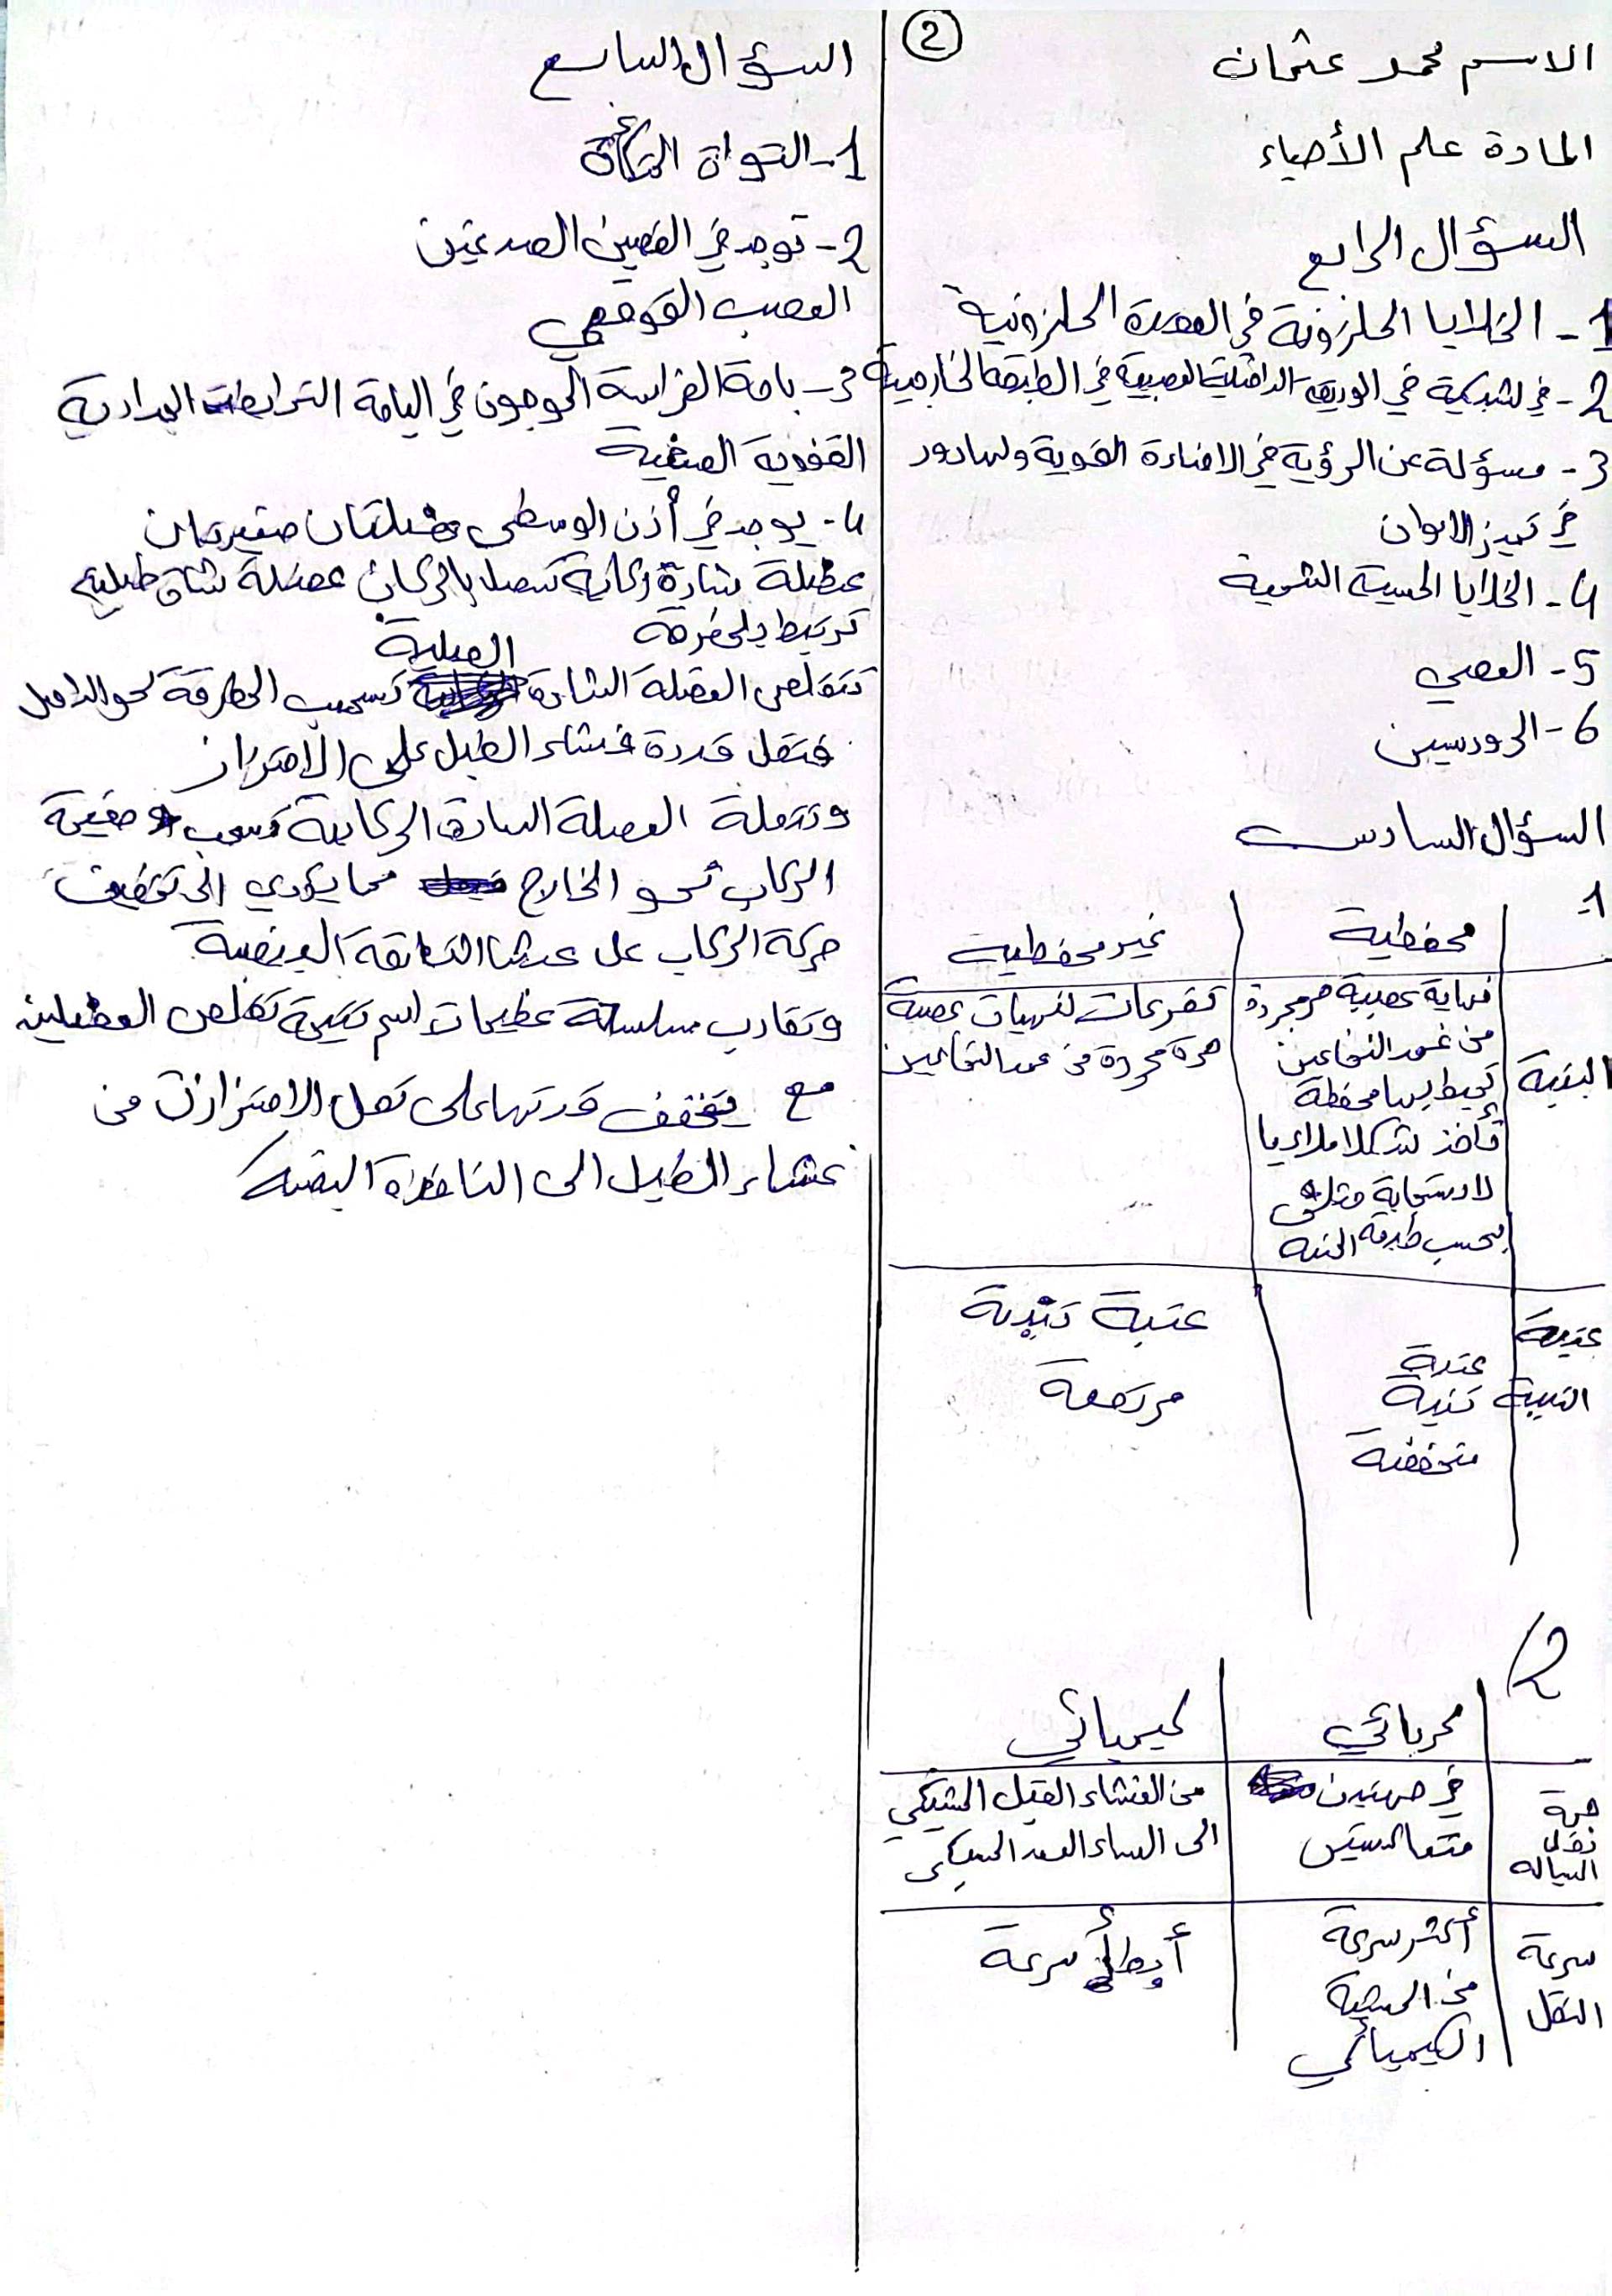 2
الاسم محمد عثمان
المادة علم الأحياء
السؤال الرابع
1- الخلايا الحلزونية في العقدة الحلزونية
2- في الشبكية في الوريقة الداخلية العصبية في الطبقة الخارجية
3- مسؤلة عن الرؤية في الاضاءة القوية ولها دور
في تميز الالوان
4- الخلايا الحسية الشمية
5- العصي
6- الرودسين
السؤال السادس
1-
محفظية
غير محفظية
البنية
نهاية عصبية حر مجردة
من غمد النخاعين
تحيط بها محفظة
تأخذ شكلا ملائما
لاستجابة
بحسب طبيعة المنبه
تفرعات لنهيات عصبية
حرة مجردة من غمد النخاعين
عتبة
التنبيه
عتبة
تنبيه
منخفضة
عتبة تنبيه
مرتفعة
2
كهربائي
كيميائي
جهة
نقل
السيالة
في جهتين
متعاكستين
من الغشاء القبل المشبكي
الى الغشاء البعد المشبكي
سرعة
النقل
أكثر سرعة
من المشبك
الكيميائي
أبطأ سرعة
السؤال السابع
1- النواة المتكأة
2- توجد في الفصين الصدغين
العصب القوقعي
3- باحة الفراسة الموجودن في الباحة الترابطية الجدارية
القفوية الصدغية
4- يوجد في أذن الوسطى عضلتان صغيرتان
عظيلة شادة ركابية تتصل بالركاب عضلة شادة طبلية
ترتبط بالمطرقة
تتقلص العضلة الشادة الطبلية تسحب المطرقة نحو الداخل
فتقل قدرة غشاء الطبل على الاهتزاز
العضلة الشادة الركابية تسحب صفيحة
الركاب نحو الخارج مما يؤدي الى تخفيف
حركة الركاب على غشاء النافذة البيضية
وتقارب سلسلة عظيمات السمع نتيجة تقلص العضلين
مع يخفف قدرتها على نقل الاهتزازت من
غشاء الطبل الى النافذة البيضية